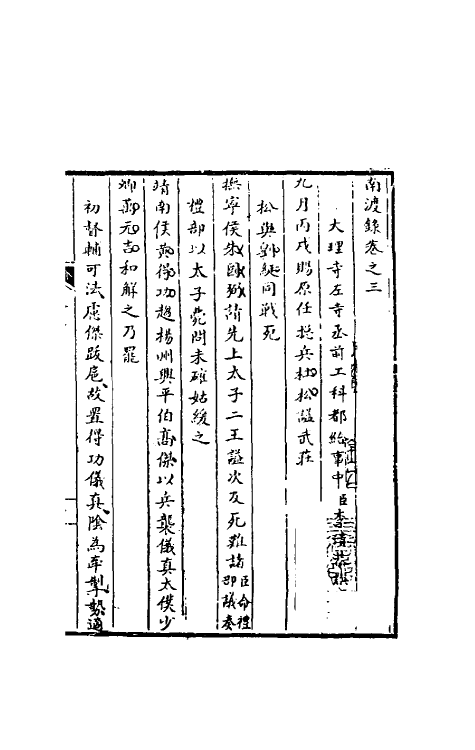 南渡錄卷之三
大理寺左寺丞前工科都給事中臣李清
九月丙戌賜原任總兵杜松諡武莊
松與劉綎同戰死
撫寧侯朱國弼請先上太子二王諡次及死難諸臣命禮部議奏
禮部以太子薨問未確姑緩之
靖南侯黃得功趨揚州興平伯高傑以兵襲儀真太僕少
卿萬元吉和解之乃罷
初督輔可法慮傑跋扈故置得功儀真陰為牽掣勢適